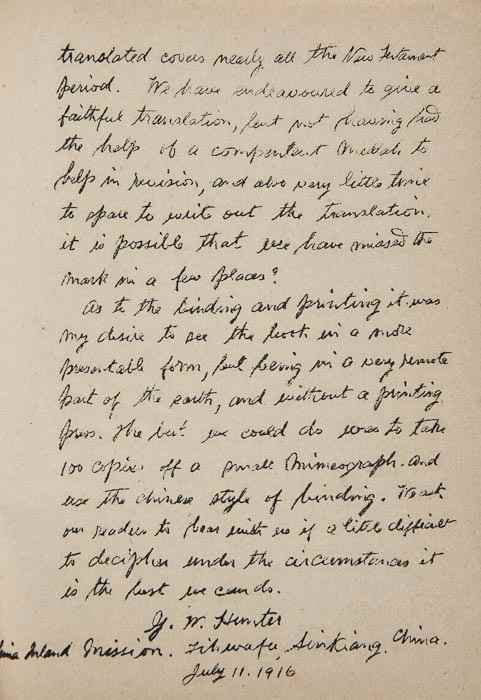 translated covers nearly all the New Testament
period. We have endeavoured to give a
faithful translation, but not having had
the help of a competent Mullah to
help in revision, and also very little time
to spare to write out the translation.
it is possible that we have missed the
mark in a few places?
As to the binding and printing it was
my desire to see the book in a more
presentable form, but being in a very remote
part of the earth, and without a printing
press. The best we could do was to take
100 copies off a small Mimeograph. and
use the Chinese style of binding. We ask
our readers to bear with us if a little difficult
to decipher under the circumstances it
is the best we can do.
G. W. Hunter
ina Inland Mission. Tihwafu, Sinkiang, China.
July 11. 1916